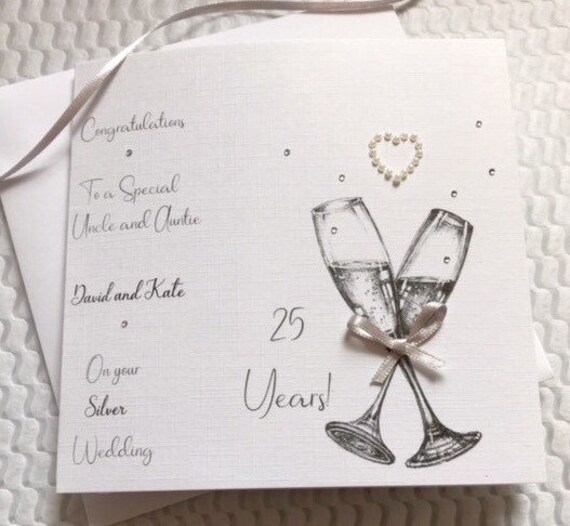 Congratulations
To a Special
Uncle and Auntie
David and Kate
On your
Silver
Wedding
25
Years!